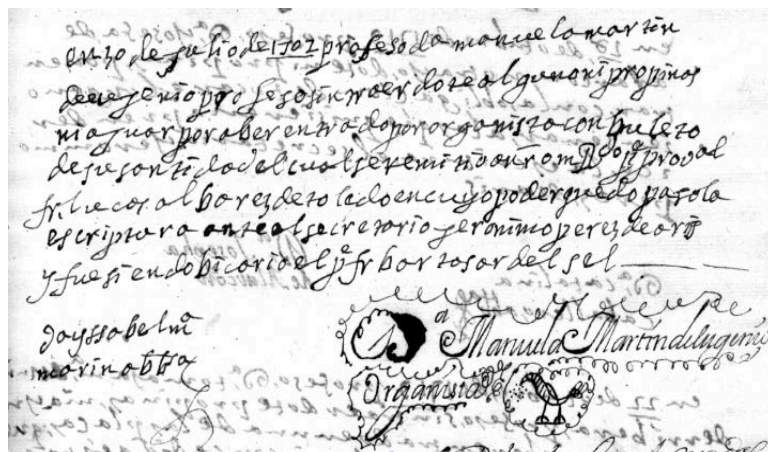 en 30 de julio de 1702 profeso da manuela martin
de eugenio profeso sin traer dote alguno ni propinas
ni ajuar por aber entrado por organista con buleto
de su santidad el cual se remitio a nro m Rdo pe proval
fr. lucas albarez de toledo en cuyo poder quedo paso la
escriptura ante el secretario geronimo perez de
y fue siendo bicario el pe fr baltasar del sel
da yssabel ma
marin abbsa
Da Manuela Martin de Eugenio
Organista